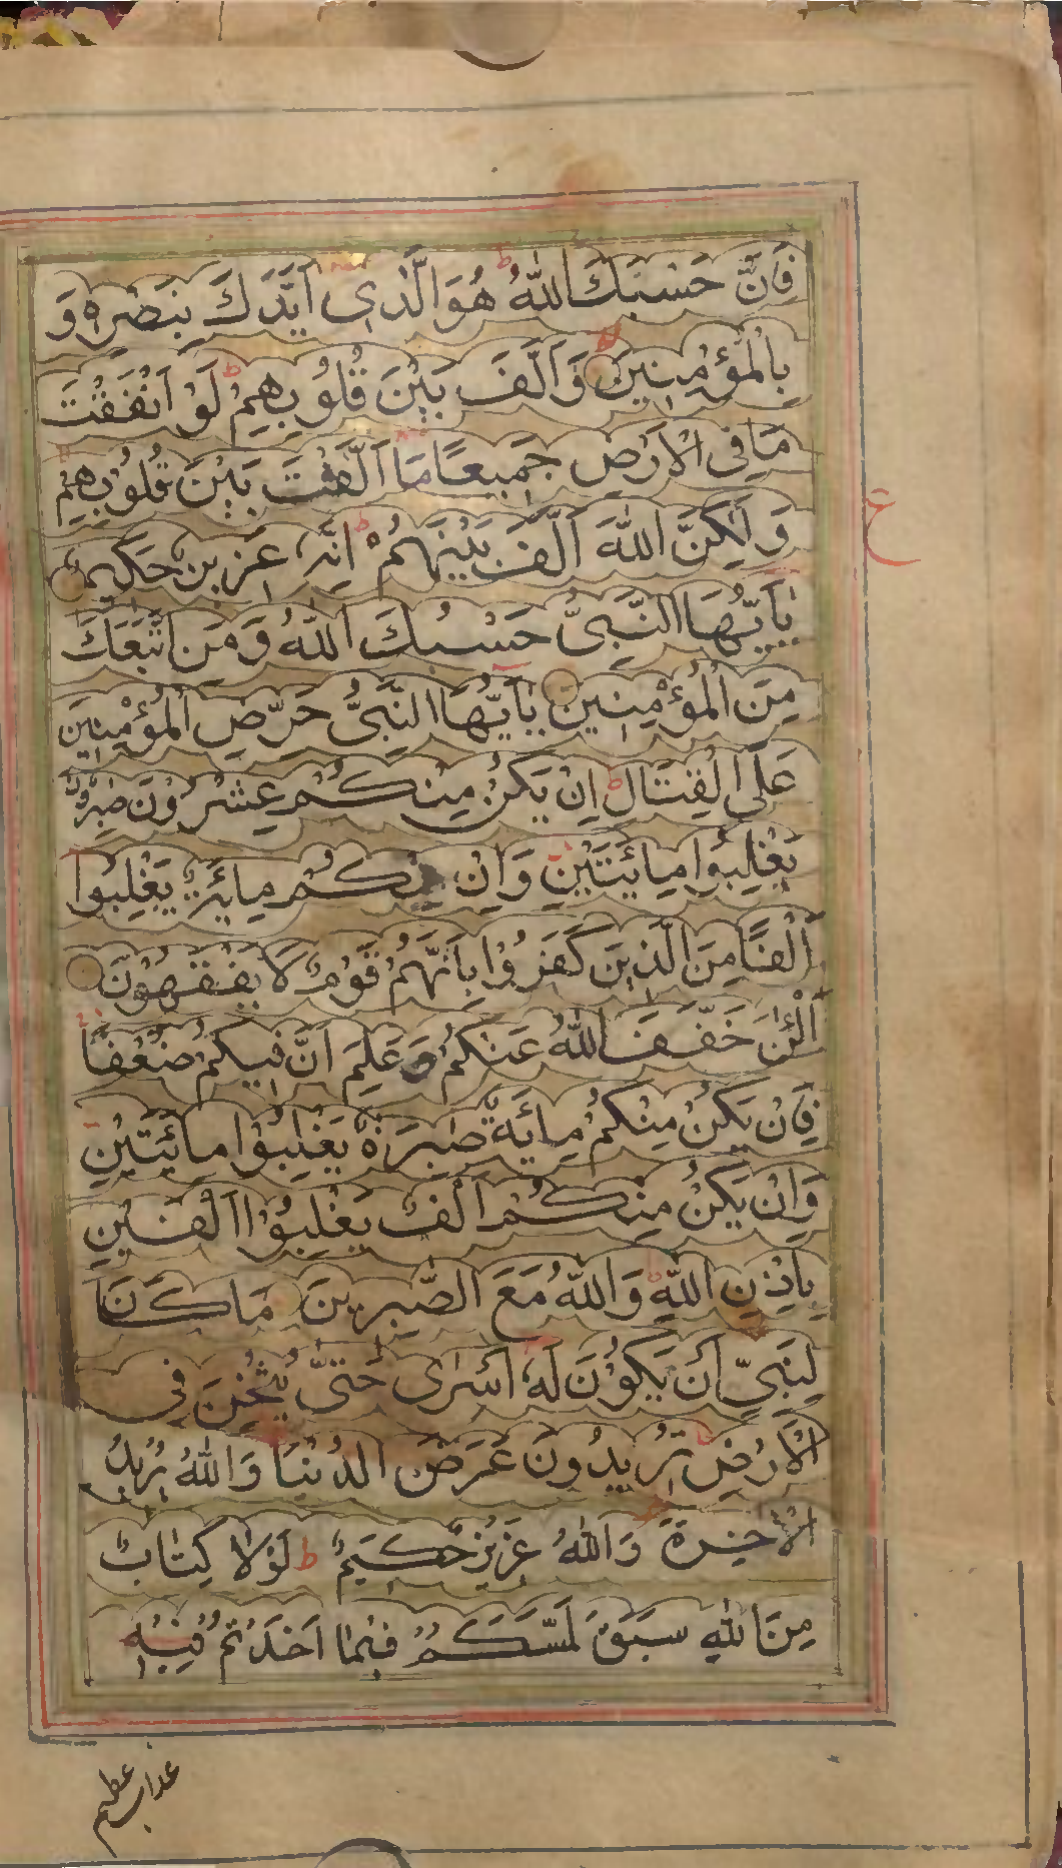 فَاِنَّ حَسْبَكَ اللّٰهُ ط هُوَ الَّذِی اَیَّدَكَ بِنَصْرِهٖ وَ
بِالْمُؤْمِنِیْنَ لا وَ اَلَّفَ بَیْنَ قُلُوْبِهِمْ ط لَوْ اَنْفَقْتَ
مَا فِی الْاَرْضِ جَمِیعًا مَا اَلَّفْتَ بَیْنَ قُلُوْبِهِمْ
وَ لٰكِنَّ اللّٰهَ اَلَّفَ بَیْنَهُمْ ط اِنَّهٗ عَزِیْزٌ حَكِیْمٌ
ع
یٰاَیُّهَا النَّبِیُّ حَسْبُكَ اللّٰهُ وَ مَنِ اتَّبَعَكَ
مِنَ الْمُؤْمِنِیْنَ یٰاَیُّهَا النَّبِیُّ حَرِّضِ الْمُؤْمِنِیْنَ
عَلَی الْقِتَالِ ط اِنْ یَكُنْ مِنْكُمْ عِشْرُوْنَ صٰبِرُوْنَ
یَغْلِبُوا مِائَتَیْنِ وَ اِنْ مِنْكُمْ مِائَةٌ یَغْلِبُوا
اَلْفًا مِنَ الَّذِیْنَ كَفَرُوْا بِاَنَّهُمْ قَوْمٌ لَا یَفْقَهُوْنَ
اَلْئٰنَ خَفَّفَ اللّٰهُ عَنْكُمْ وَ عَلِمَ اَنَّ فِیْكُمْ ضَعْفًا
فَاِنْ یَكُنْ مِنْكُمْ مِائَةٌ صَابِرَةٌ یَغْلِبُوْا مِائَتَیْنِ
وَ اِنْ یَكُنْ مِنْكُمْ اَلْفٌ یَغْلِبُوْا اَلْفَیْنِ
بِاِذْنِ اللّٰهِ ط وَ اللّٰهُ مَعَ الصّٰبِرِیْنَ مَا كَانَ
لِنَبِیٍّ اَنْ یَكُوْنَ لَهٗ اَسْرٰی حَتّٰی یُثْخِنَ فِی
الْاَرْضِ ط تُرِیْدُوْنَ عَرَضَ الدُّنْیَا وَ اللّٰهُ یُرِیْدُ
الْاٰخِرَةَ وَ اللّٰهُ عَزِیْزٌ حَكِیْمٌ ط لَوْلَا كِتَابٌ
مِنَ اللّٰهِ سَبَقَ لَمَسَّكُمْ فِیْمَا اَخَذْتُمْ فِیْهِ
عذاب عظیم